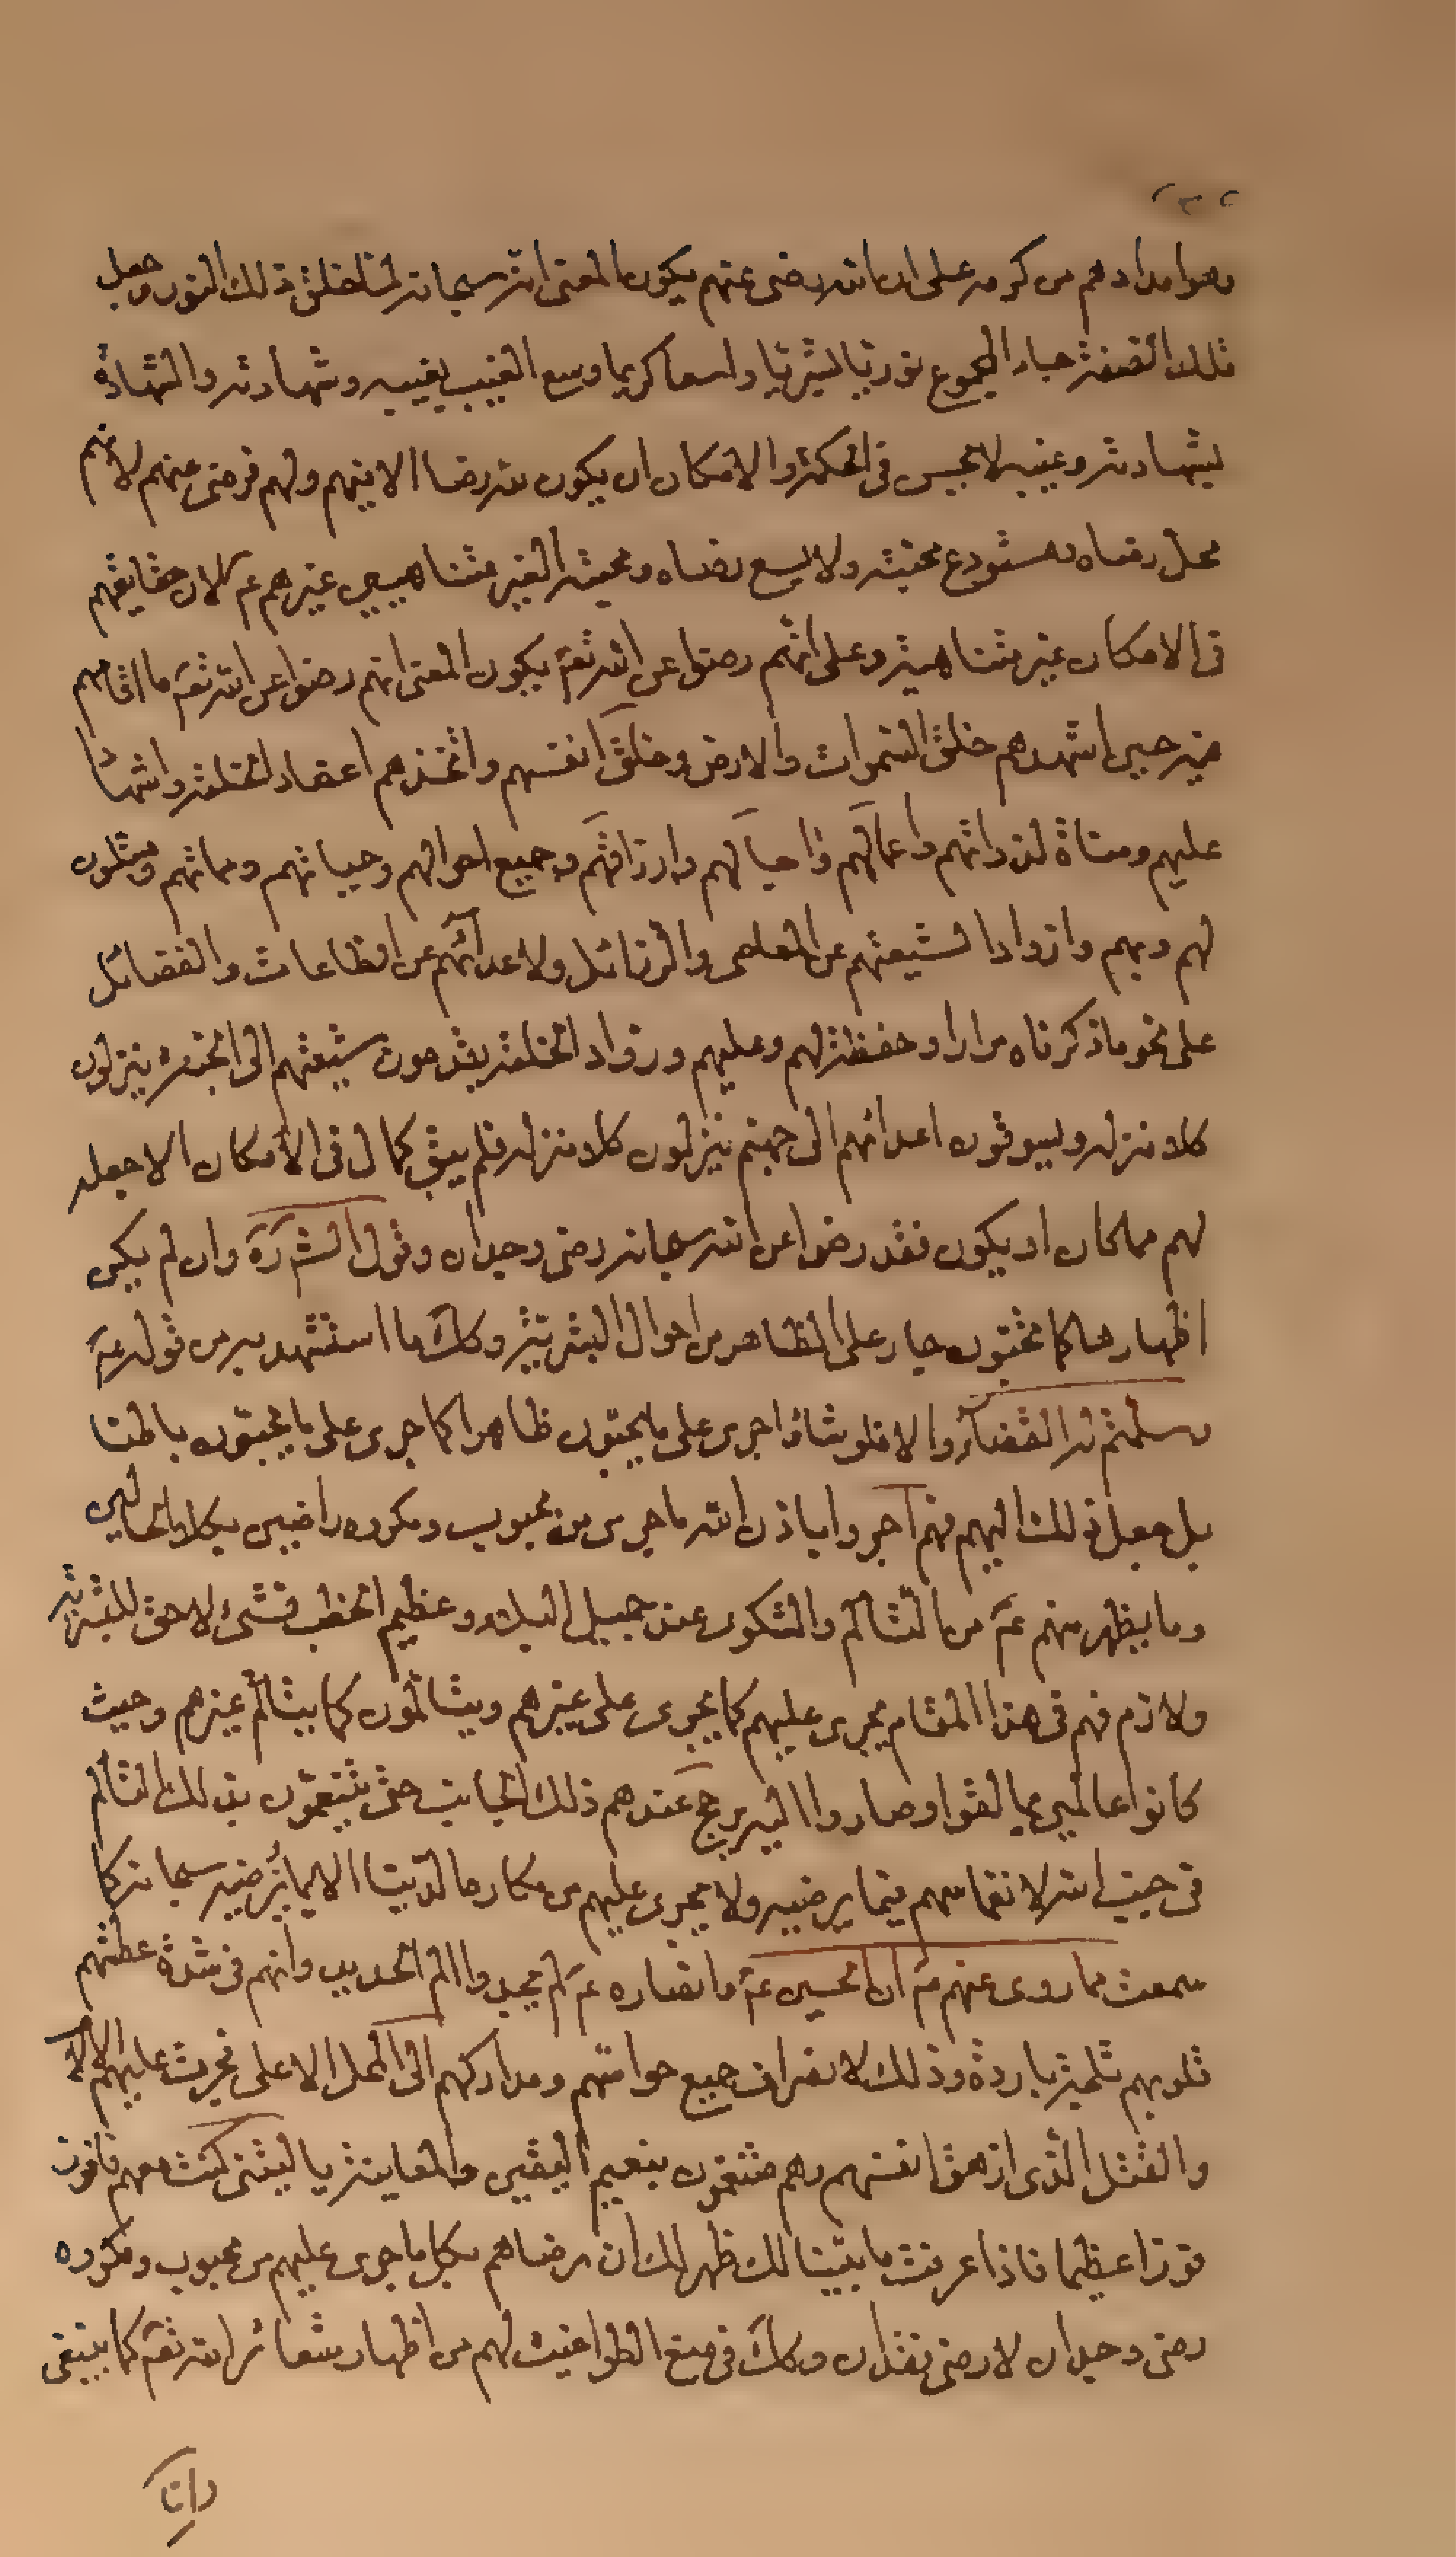 وهو امدادهم من كرمه على ان الله رضى عنهم يكون المعنى انه سبحانه لما خلق ذلك النور وجعل
تلك الصفة جاء المجموع نوريا لشريا واسعا كريما وسع الغيب بغيبه وشهادته والشهادة
بشهادته وغيبه لا يحسن فى الحكمة والامكان ان يكون لله رضا الا فيهم ولهم فرضى عنهم لانهم
محل رضاه ومستودع محبته ولا يسع رضاه ومحبته الغير متناهيين غيرهم عم لان حقايقهم
فى الامكان غير متناهية وعلى انهم رضوا عن الله تعم يكون المعنى انهم رضوا عن الله تعم ما اقامهم
فيه حين اشهدهم خلق السموات والارض وخلق انفسهم واتخذهم اعضاد الخلقه واشهادا
عليهم ومناة لذواتهم واعمالهم واجالهم وارزاقهم وجميع احوالهم وحياتهم ومماتهم ومثلون
لهم وبهم واذوادا لشيعتهم عن المعاصى والرذائل ولاعدائهم عن الطاعات والفضائل
على نحو ما ذكرناه مرارا وحفظة لهم وعليهم ورواد الخلقه يقدمون شيعتهم الى الجنة ينزلون
كلا منزله ويسوقون اعدائهم الى جهنم ينزلون كلا منزله فلم يبق كمال فى الامكان الا جعله
لهم مما كان او يكون فقد رضوا عن الله سبحانه رضى وجدان وقول الش ره وان لم يكن
اظهارها كما تحبون جار على الظاهر من احوال البشرية وكك ما استشهد به من قوله عم
وسلمتم له القضاء والا فلو شاؤا اجرى على ما يحبون ظاهرا كما جرى على ما يحبون باطنا
بل جعل ذلك اليهم فهم اجروا باذن الله ما جرى من محبوب ومكروه راضين بكلا الحالين
وما يظهر منهم عم من التألم والشكوى عند جميل البلاء وعظيم الخطب فشىء لاحق للبشرية
ولازم فهم فى هذا المقام يجرى عليهم كما يجرى على غيرهم ويتألمون كما يتألم غيرهم وحيث
كانوا عالمين بما لقوا وصاروا اليه يرجح عندهم ذلك الجانب حتى يتنعمون بذلك التألم
فى حب الله لانغماسهم فيما يرضيه ولا يجرى عليهم من مكاره الدنيا الا بما يرضيه سبحانه كما
سمعت مما روى عنهم عم ان الحسين عم وانصاره عم لم يجدوا الم الحديد وانهم فى شدة عطشهم
قلوبهم ثلجة باردة وذلك لانصراف جميع حواسهم ومداركهم الى المحل الاعلى فجرت عليهم الالام
والقتل الذى ازهق انفسهم وهم متنعمون بنعيم اليقين والمعاينة يا ليتنى كنت معهم فافوز
فوزا عظيما فاذا عرفت ما بينا لك ظهر لك ان رضاهم بكل ما جرى عليهم من محبوب ومكروه
رضى وجدان لا رضى فقدان وكك فى منع الطواغيت لهم من اظهار شعائر الله تعم كما ينبغى